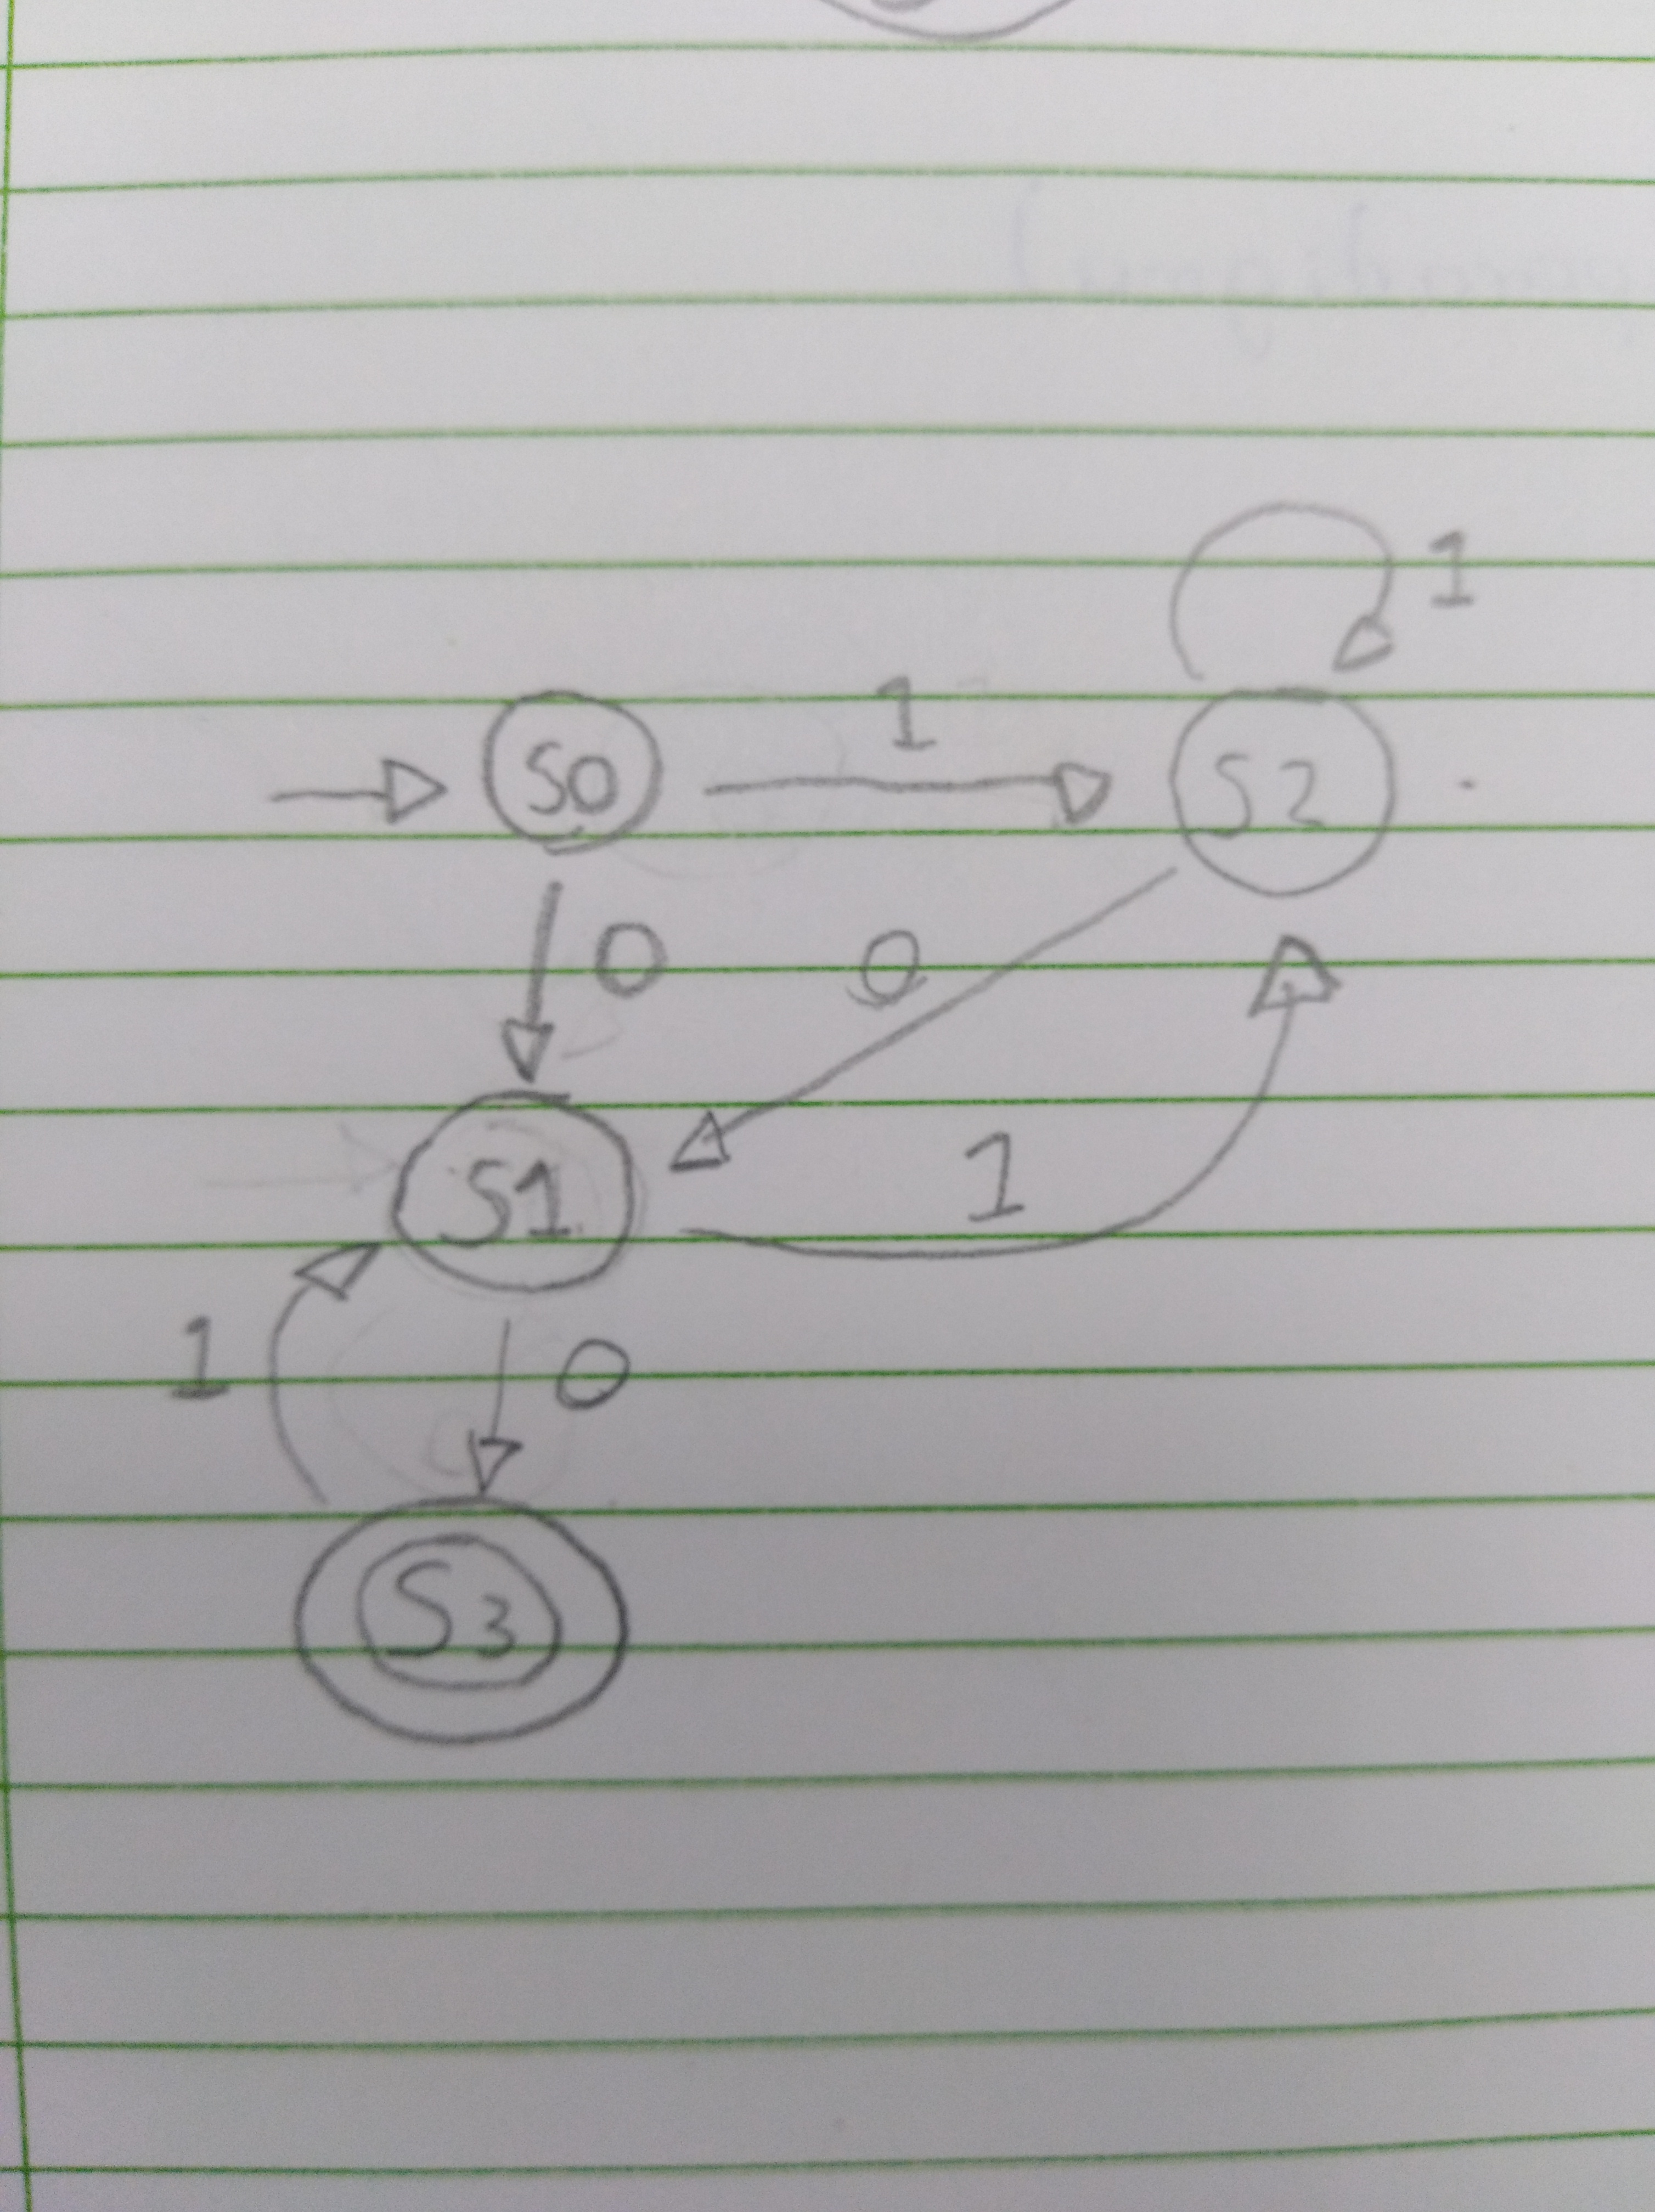 1
S0 1 S2
0 0
S1 1
1 0
S3